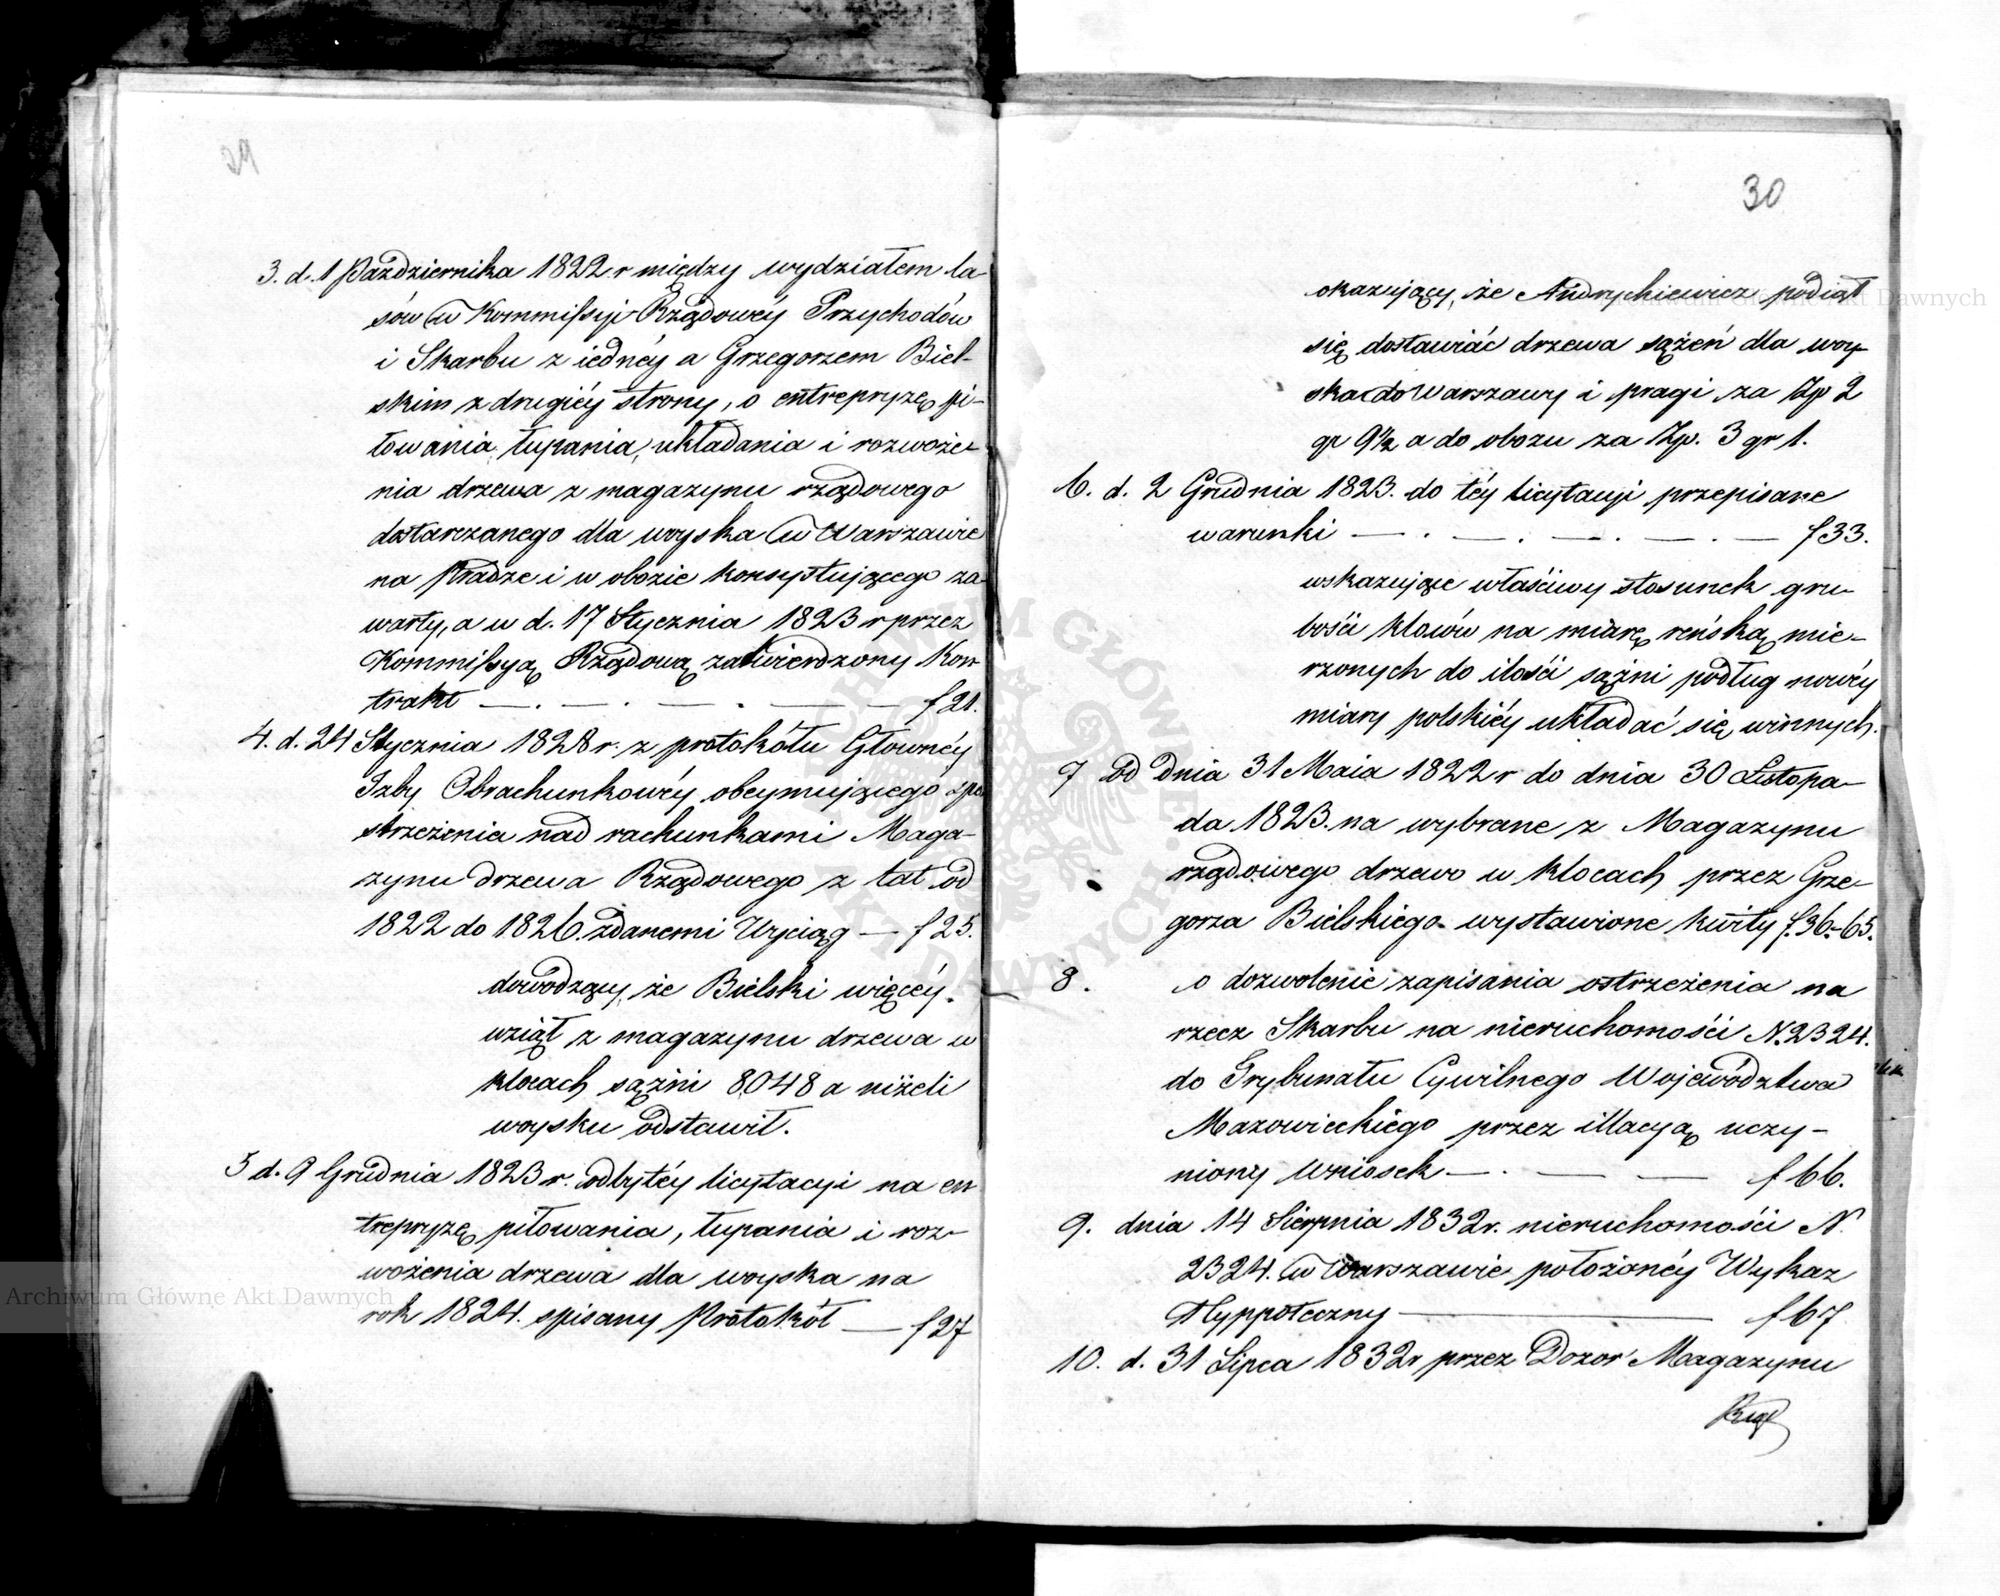 29
3. d. 1 Października 1822 r między wydziałem la-
sów w Kommissyi Rządowéy Przychodów
i Skarbu z iednéy a Grzegorzem Biel-
skim z drugiéy strony, o entrepryzę pi-
łowania, łupania, układania i rozwoże-
nia drzewa z magazynu rządowego
dostarczanego dla woyska w Warszawie
na Pradze i w obozie konsystującego za-
warty, a w d. 17 Stycznia 1823 r przez
Kommissyą Rządową zatwierdzony Kon
trakt — . — . — . — f 21.
4. d. 24 Stycznia 1828 r. z protokółu Głownéy
Izby Obrachunkowéy obeymującego spo
strzeżenia nad rachunkami Maga-
zynu drzewa Rządowego z lat od
1822 do 1826. zdanemi Wyciąg — f 25.
dowodzący, że Bielski więcéy
wziął z magazynu drzewa w
klocach sążni 8048 a niżeli
woysku odstawił.
5 d. 9 Grudnia 1823 r. odbytéy licytacyi na en
trepryzę piłowania, łupania i roz-
wożenia drzewa dla woyska na
rok 1824. spisany Protokół — f 27
30
okazujący, że Andrychiewicz podiął
się dostawiać drzewa sążeń dla woy-
ska do Warszawy i pragi za Zp 2
gr 9½ a do obozu za Zp. 3 gr 1.
6. d. 2 Grudnia 1823. do téy licytacyi przepisane
warunki — . — . — . — . — f 33.
wskazujące właściwy stosunek gru-
bości kloców na miarę reńską mie-
rzonych do ilości sążni podług nowéy
miary polskiéy układać się winnych.
7 od dnia 31 Maia 1822 r do dnia 30 Listopa-
da 1823. na wybrane z Magazynu
rządowego drzewo w klocach przez Grze-
gorza Bielskiego wystawione kwity f. 36.-65.
8. o dozwolenie zapisania ostrzeżenia na
rzecz Skarbu na nieruchomości N. 2324.
do Trybunału Cywilnego Województwa
Mazowieckiego przez illacyą uczy-
niony wniosek — . — — f 66.
9. dnia 14 Sierpnia 1832 r. nieruchomości N.
2324. w Warszawie położonéy Wykaz
Hyppoteczny — f 67
10. d. 31 Lipca 1832 r przez Dozór Magazynu
Rzą
Archiwum Główne Akt Dawnych
Archiwum Główne Akt Dawnych
ARCHIWUM GŁÓWNE AKT DAWNYCH